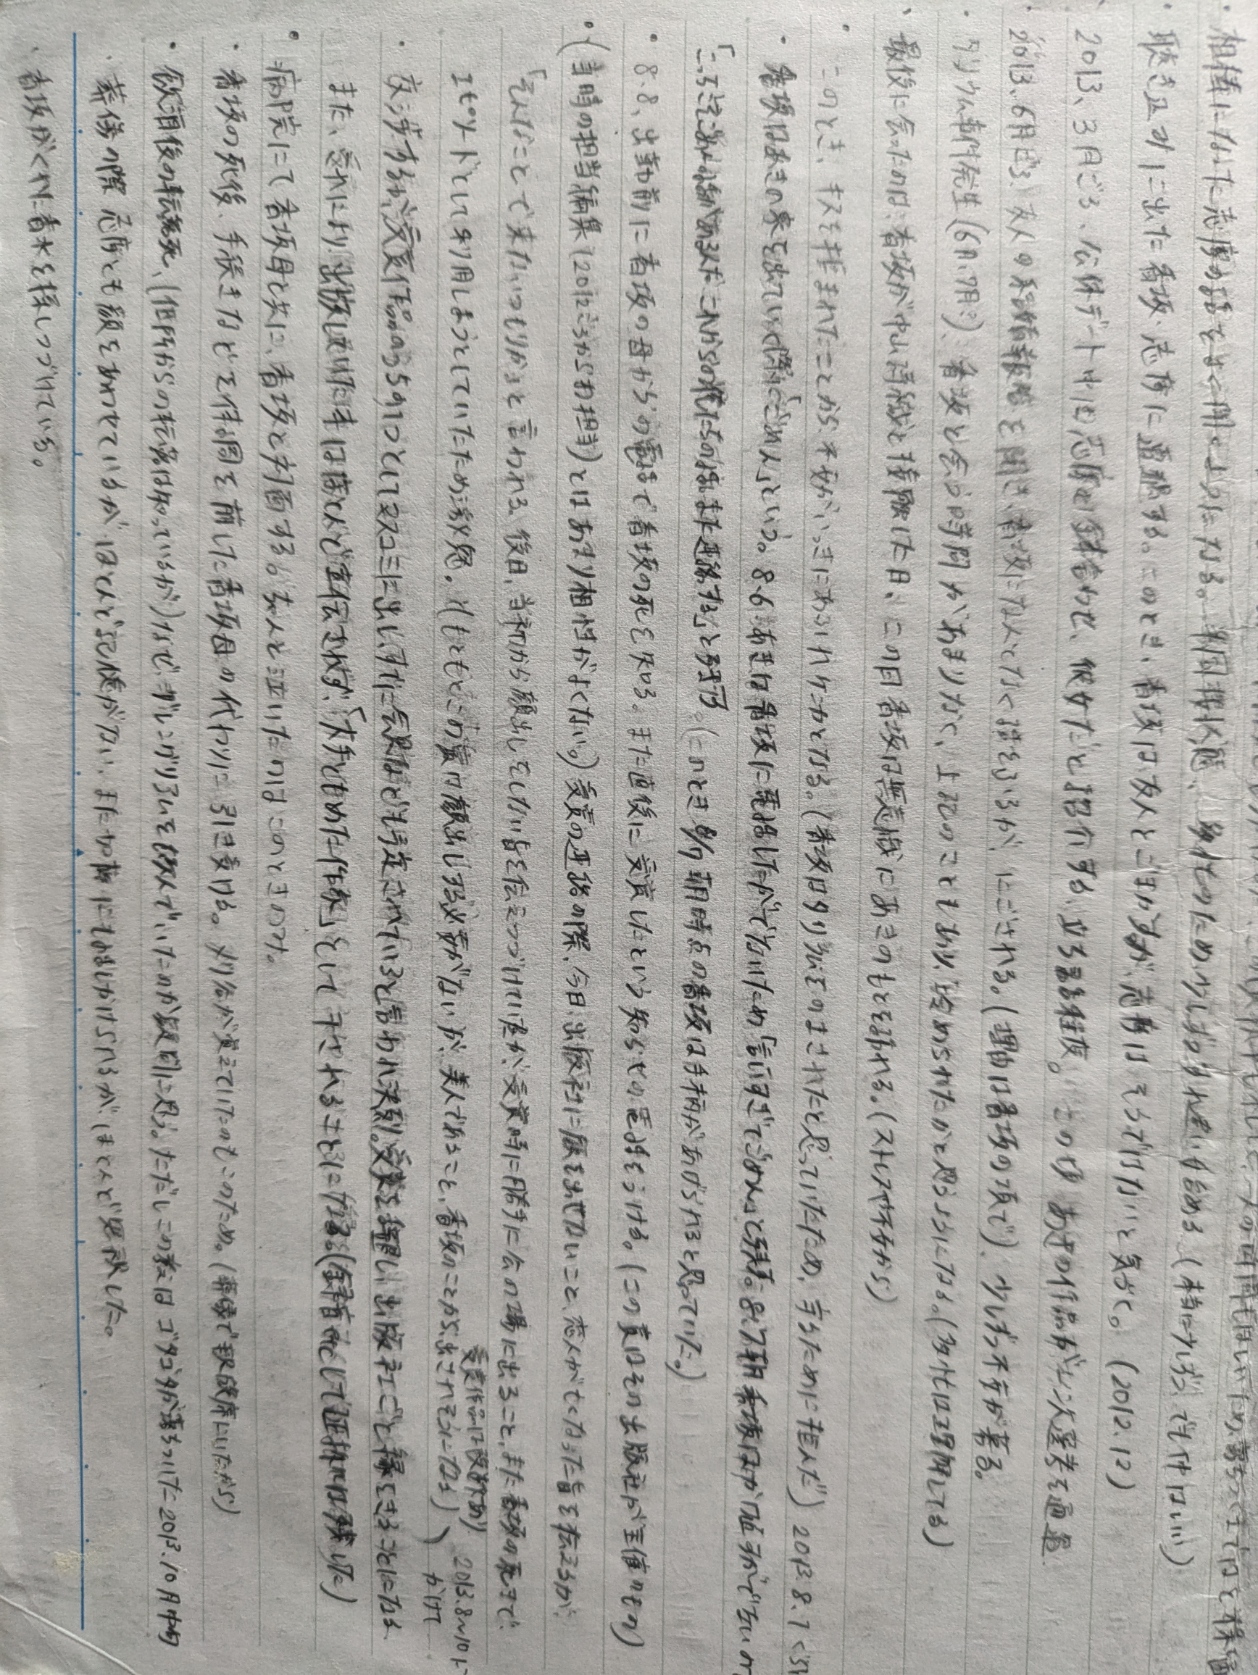 ・相棒になった志摩の話をよく聞くようになる。半同棲状態、多忙のため少しずつすれ違い始める(本当に少しずつ、でも仲はいい)
・聴き込みに出た香坂・志摩に遭遇する。このとき、香坂は友人とごまかすが、志摩はそうではないと気づく。(2012.12)
2013、3月ごろ、公休デート中に志摩と鉢合わせ、彼女だと紹介する、立ち話程度。この頃 あきの作品が一次選考を通過
・2013、6月ごろ、友人の結婚報告を聞き、香坂になんとなく話をふるが、にごされる。(理由は香坂の項で)、少しずつ不安が募る。
・タリウム事件発生(6月、7月?)、香坂と会う時間があまりなく、上記のこともあり、冷められたかと思うようになる。(多忙は理解してる)
・最後に会ったのは、香坂が中山 と接触した日、この日香坂は無意識にあきのもとを訪れる。(ストレスや不安から)
・このとき、キスを拒まれたことから不安がいっきにあふれケンカとなる。(香坂はタリウムをのまされたと思っていたため、守るために拒んだ) 2013.8.1くらい
・香坂はあきの家を出ていく際に「ごめん」という。8.6、あきは香坂に電話したがでないため「言いすぎてごめん」と残す。8.7朝 香坂はかけ直すがでないので
「こっちこそごめん。話があるんだ これからの俺たちの話。また連絡する」と残す。(このとき8/7 朝時点の香坂は手柄があげられると思っていた。)
・8.8、出勤前に香坂の母からの電話で香坂の死を知る。また直後に受賞したという知らせの電話をうける。(この賞はその出版社が主催のもの)
・(当時の担当編集(2012ごろからお担当)とはあまり相性がよくない。)受賞の連絡の際、今日、出版社に顔を出せないこと、恋人が亡くなった旨を伝えるが、
「そんなことで来ないつもりか」と言われる。後日、当初から顔出しをしない旨を伝えつづけていたが、受賞時に勝手に会の場に出ること、また香坂の死まで、
受賞作品は改
エピソードとして利用しようとしていたため激怒。(もともとこの賞は顔出しする必要がないが、美人であること、香坂のことから、出されそうになる) 2013.8〜10に
かけて
・交渉するが、受賞作品のうちの1つとしてマスコミに出し、すでに会見なども予定されていると言われ決裂。受賞を辞退し、出版社ごと縁をきることになる
また、それにより、出版していた本はほとんど宣伝されず、「大手ともめた作家」として干されることになる。(録音 として証拠は残した)
・病院にて香坂母と共に、香坂と対面する。ちゃんと泣いたのはこのときのみ。
・香坂の死後、手続きなどを体調を崩した香坂母の代わりに引き受ける。刈谷が覚えていたのもこのため。(葬儀で親族席にいたから)
・飲酒後の転落死、(低所からの転落は知っているが)なぜ を飲んでいたのか疑問に思う。ただしこの頃はゴタゴタが落ちついた2013.10月中旬
・葬儀の際 志摩とも顔をあわせているが ほとんど記憶がない、また にも話しかけられるが、ほとんど した。
・香坂がくれた香水を探しつづけている。